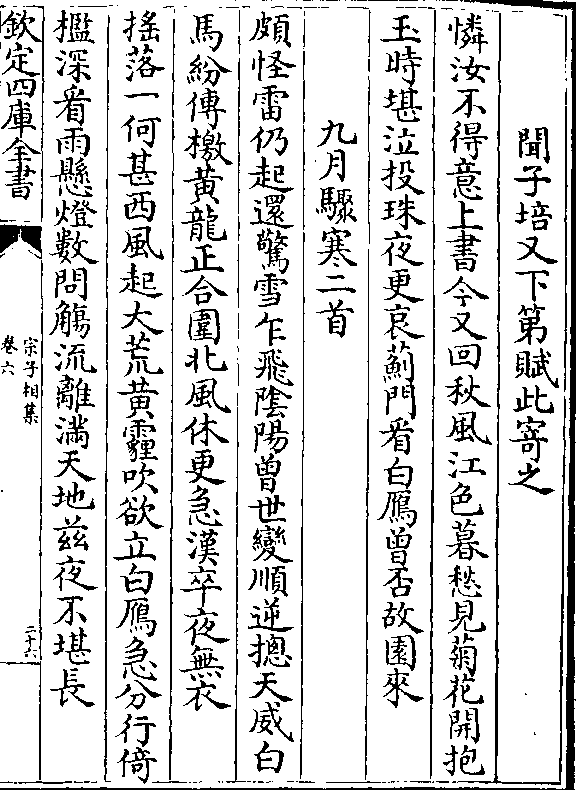 聞子培又下第賦此寄之
憐汝不得意上書今又回秋風江色暮愁見菊花開抱
玉時堪泣投珠夜更哀薊門看白鴈曾否故園來
九月驟寒二首
頗怪雷仍起還驚雪乍飛陰陽曾世變順逆摠天威白
馬紛傳檄黃龍正合圍北風休更急漢卒夜無衣
摇落一何甚西風起大荒黃霾吹欲立白鴈急分行倚
檻深看雨懸燈數問觴流離滿天地兹夜不堪長
欽定四庫全書
宗子相集
卷六
二十六